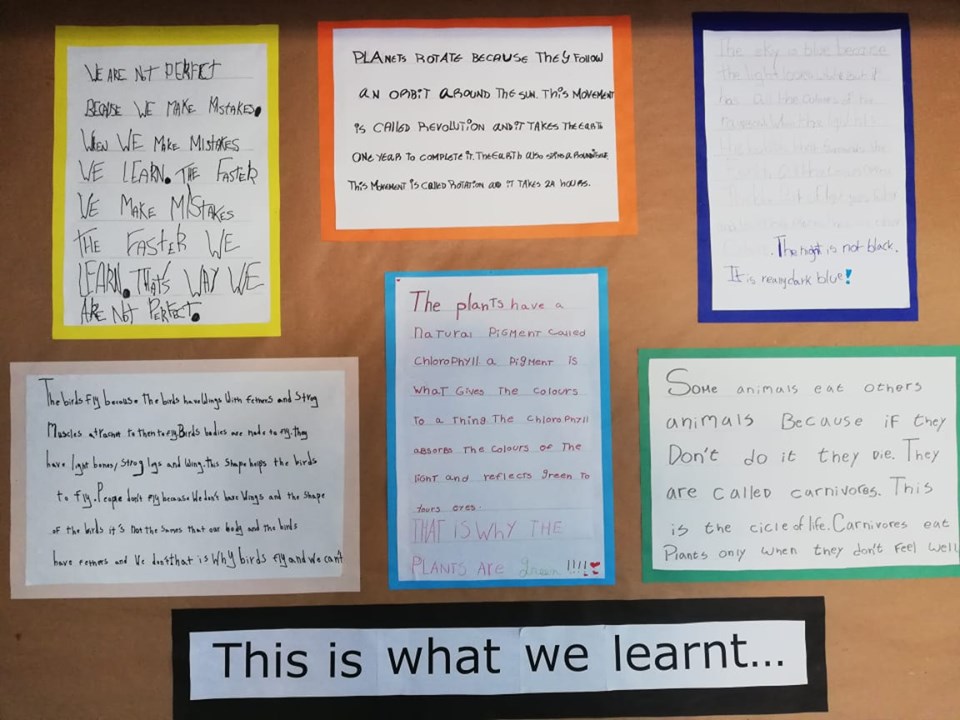 WE ARE NOT PERFECT
BECAUSE WE MAKE MISTAKES.
WHEN WE MAKE MISTAKES
WE LEARN. THE FASTER
WE MAKE MISTAKES
THE FASTER WE
LEARN. THAT'S WAY WE
ARE NOT PERFECT.
PLANETS ROTATE BECAUSE THEY FOLLOW
AN ORBIT AROUND THE SUN. THIS MOVEMENT
IS CALLED REVOLUTION AND IT TAKES THE EARTH
ONE YEAR TO COMPLETE IT. THE EARTH ALSO SPINS AROUND
THIS MOVEMENT IS CALLED ROTATION AND IT TAKES 24 HOURS.
The sky is blue
the light
has all the colours of the
The night is not black.
It is really dark blue!
The birds fly because The birds have Wings With fethers and Strog
Muscles to then to fly. Birds bodies are made to fly. They
have light bones, strog legs and wing. This shape helps the birds
to fly. People don't fly because We don't have Wings and the shape
of the birds it's not the somes that our body and the birds
have fethers and We don't that is Why birds fly and we can't
The plants have a
natural Pigment called
Chlorophyll a Pigment is
what gives the colours
to a thing. The Chlorophyll
absorbs the colours of the
light and reflects green to
yours eyes.
THAT IS WHY THE
PLANTS ARE green !!!!
Some animals eat others
animals Because if they
Don't do it they Die. They
are called carnivores. This
is the cicle of life. Carnivores eat
Plants only when they don't feel well
This is what we learnt...